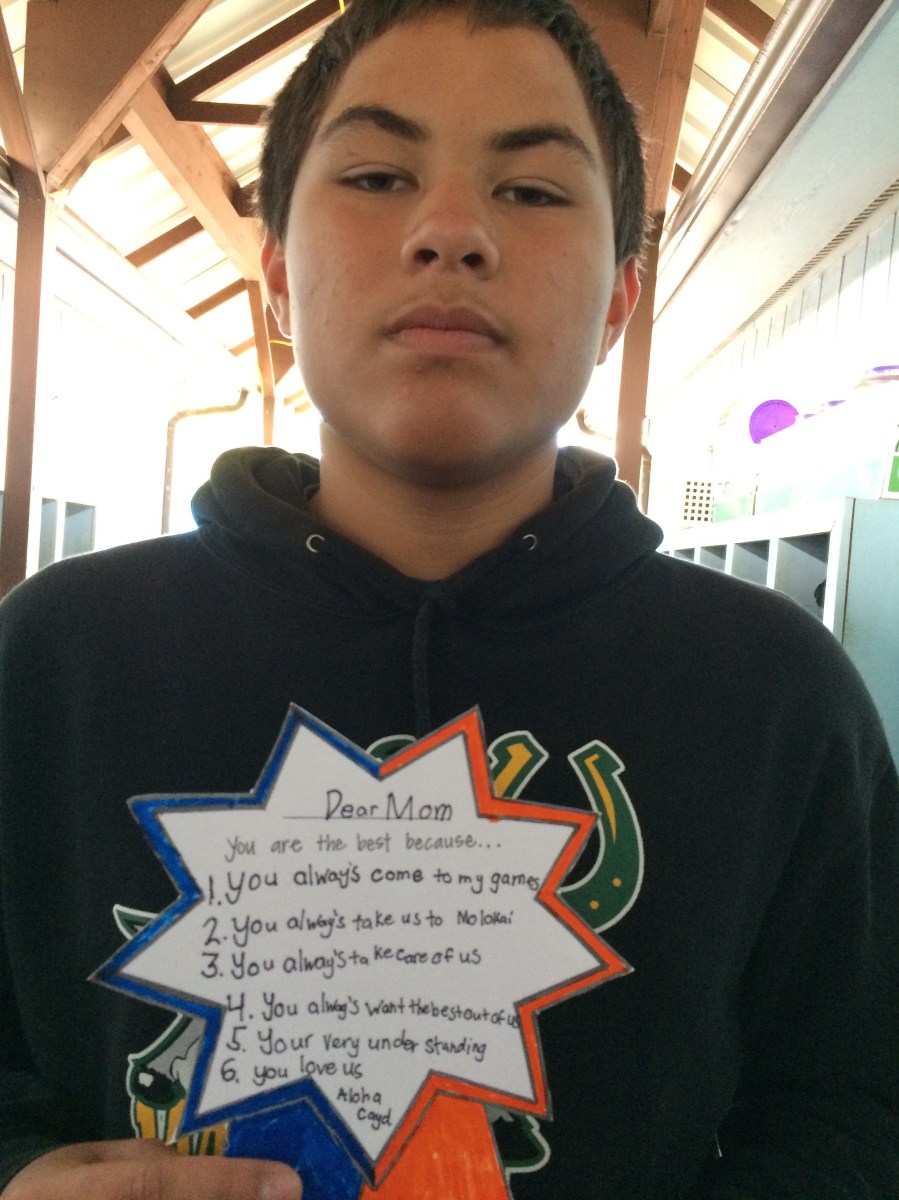 Dear Mom
You are the best because...
1. You alway's come to my games
2. You alway's take us to Molokai
3. You alway's take care of us
4. You alway's want the best out of us
5. Your very under standing
6. you love us
Aloha
Cayd